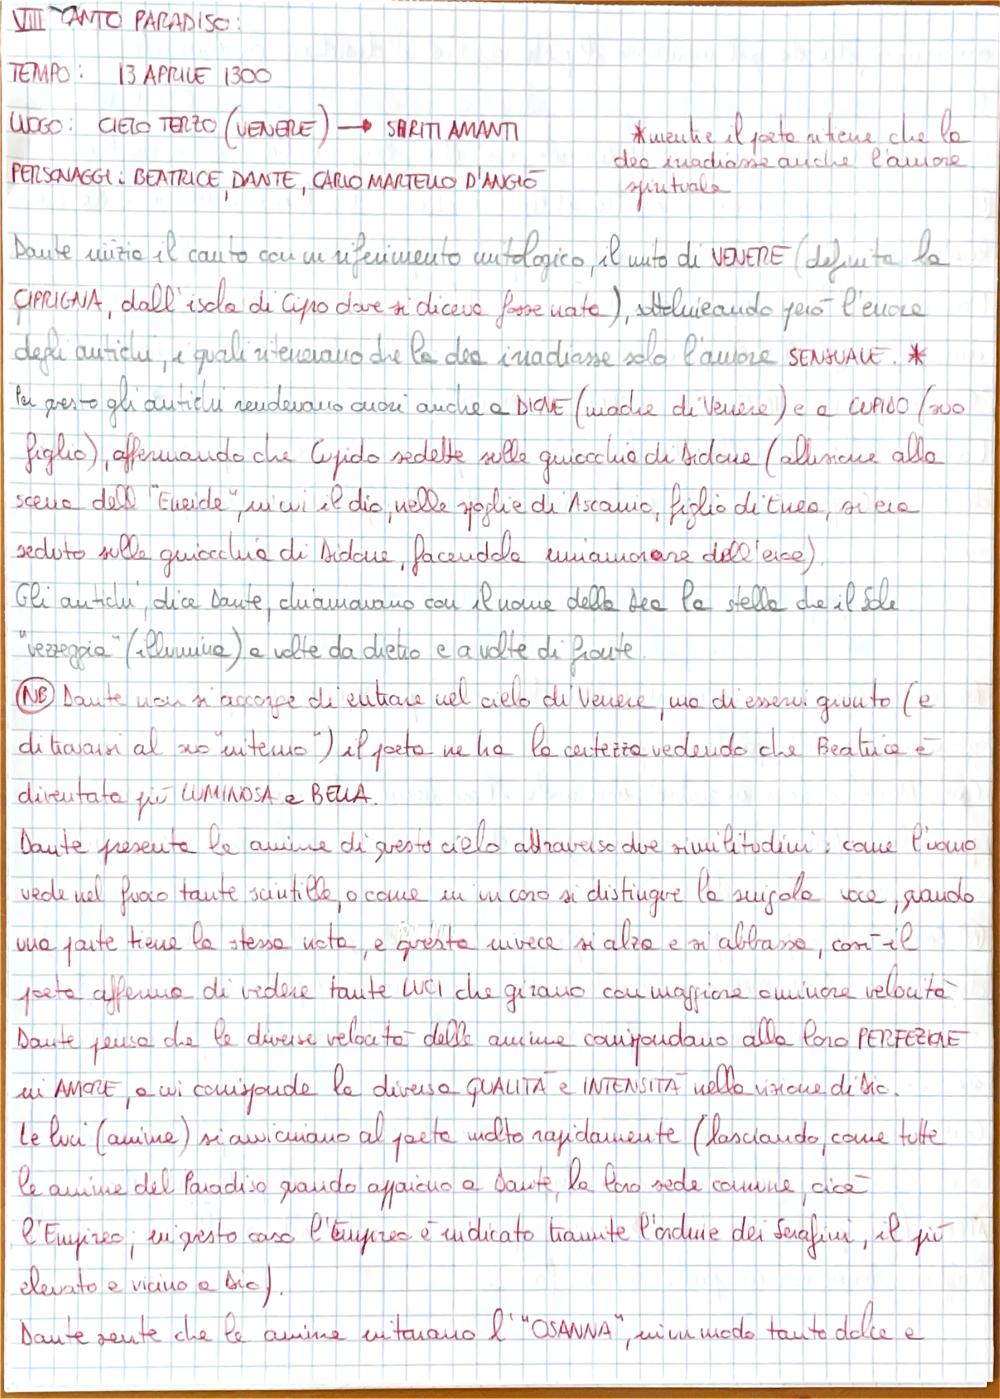 VIII CANTO PARADISO:
TEMPO: 13 APRILE 1300
LUOGO: CIELO TERZO (VENERE) → SPIRITI AMANTI
*mentre il poeta ritiene che la
dea irradiasse anche l'amore
spirituale
PERSONAGGI: BEATRICE, DANTE, CARLO MARTELLO D'ANGIÒ
Dante inizia il canto con un riferimento mitologico, il mito di VENERE (definita la
CIPRIGNA, dall'isola di Cipro dove si diceva fosse nata), sottolineando però l'errore
degli antichi, i quali ritenevano che la dea irradiasse solo l'amore SENSUALE. *
Per questo gli antichi rendevano onori anche a DIONE (madre di Venere) e a CUPIDO (suo
figlio), affermando che Cupido sedette sulle ginocchia di Didone (allusione alla
scena dell'"Eneide", in cui il dio, nelle spoglie di Ascanio, figlio di Enea, si era
seduto sulle ginocchia di Didone, facendola innamorare dell'eroe).
Gli antichi, dice Dante, chiamavano con il nome della Dea la stella che il Sole
"vezzeggia" (illumina) a volte da dietro e a volte di fronte.
NB Dante non si accorge di entrare nel cielo di Venere, ma di esservi giunto (e
di trovarsi al suo "interno") il poeta ne ha la certezza vedendo che Beatrice è
diventata più LUMINOSA e BELLA.
Dante presenta le anime di questo cielo attraverso due similitudini: come l'uomo
vede nel fuoco tante scintille, o come in un coro si distingue la singola voce, quando
una parte tiene la stessa nota, e questa invece si alza e si abbassa, così il
poeta afferma di vedere tante LUCI che girano con maggiore o minore velocità
Dante pensa che le diverse velocità delle anime corrispondano alla loro PERFEZIONE
in AMORE, a cui corrisponde la diversa QUALITÀ e INTENSITÀ nella visione di Dio.
Le luci (anime) si avvicinano al poeta molto rapidamente (lasciando, come tutte
le anime del Paradiso quando appaiono a Dante, la loro sede comune, cioè
l'Empireo; in questo caso l'Empireo è indicato tramite l'ordine dei Serafini, il più
elevato e vicino a Dio).
Dante sente che le anime intonano l'"OSANNA", in un modo tanto dolce e